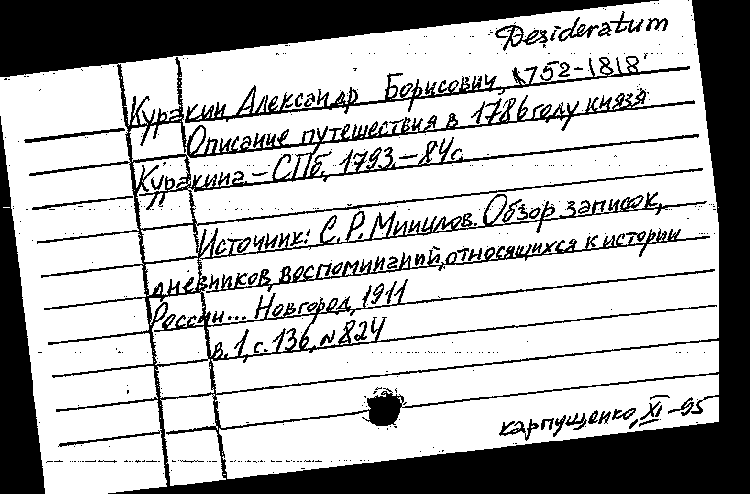 Desideratum
Куракин, Александр Борисович, 1752-1818
Описание путешествия в 1786 году князя
Куракина. - СПб, 1793. - 84с.
Источник: С.Р. Минцлов. Обзор записок,
дневников, воспоминаний, относящихся к истории
России... Новгород, 1911
в. 1, с. 136, №824
Карпущенко, XI-95